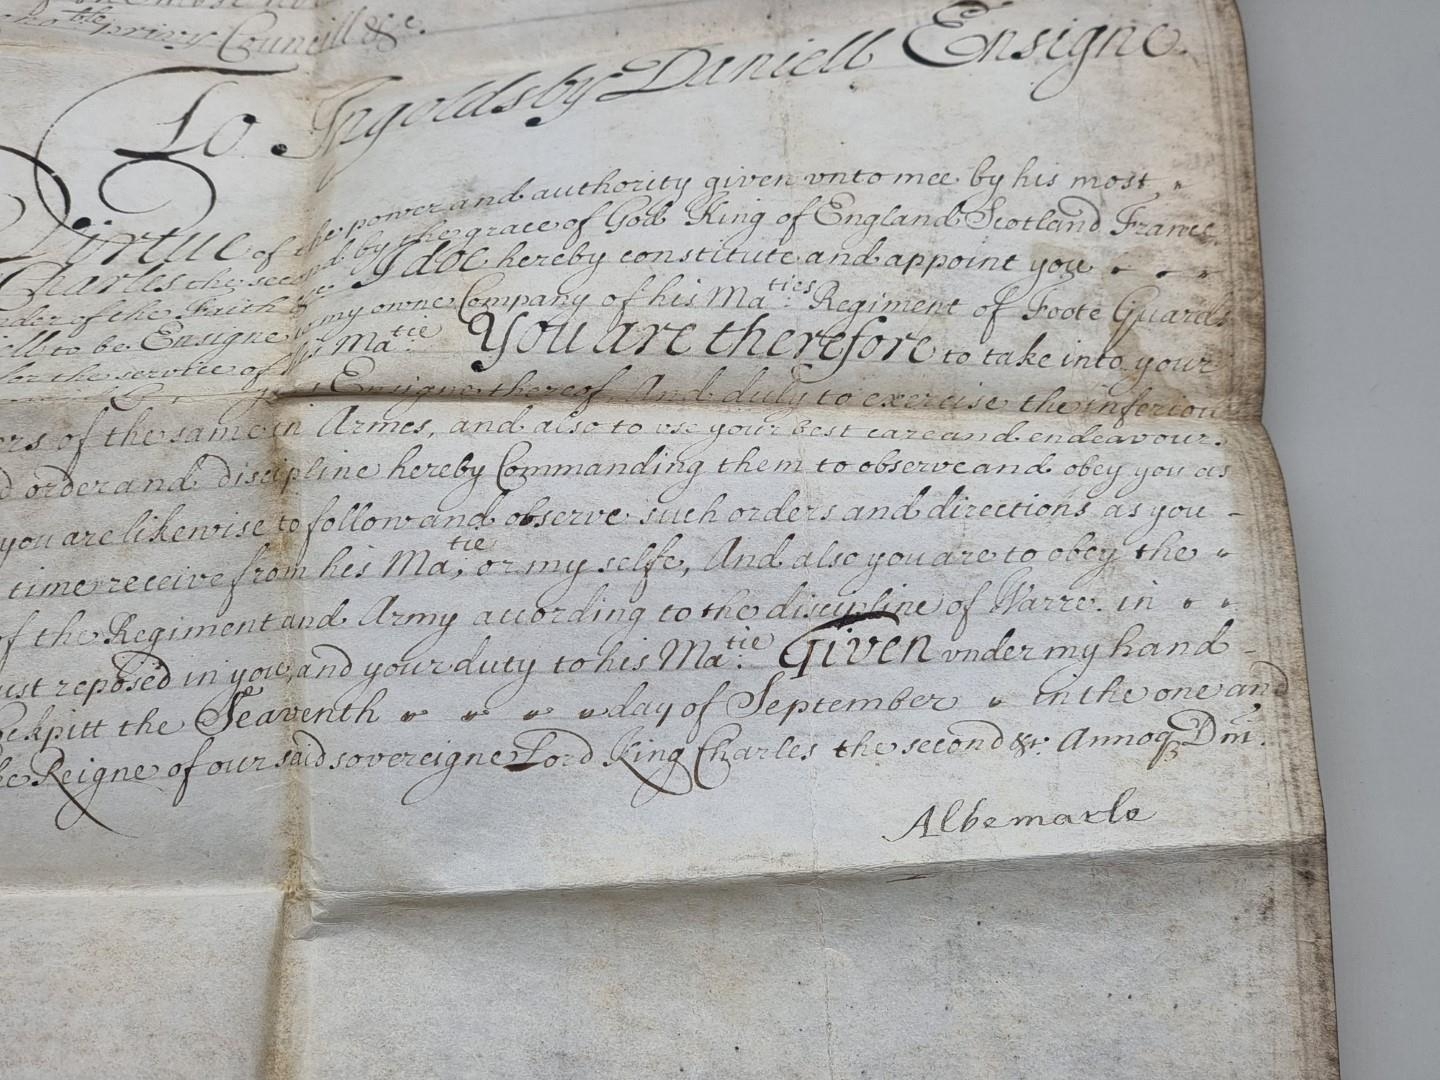 privy Councill &c.
To Ingoldsby Daniell Ensigne.
Virtue of the power and authority given vnto mee by his most
Charles the second by the grace of God King of England Scotland France
of the Faith &c I doe hereby constitute and appoint you
to be Ensigne my owne Company of his Maties Regiment of Foote Guards
for the service of his Matie You are therefore to take into your
Ensigne thereof, And duly to exercise the inferiour
of the same in Armes, and also to vse your best care and endeavour
order and discipline hereby Commanding them to observe and obey you as
you are likewise to follow and observe such orders and directions as you
time receive from his Matie, or my selfe, And also you are to obey the
of the Regiment and Army according to the discipline of Warre. in
reposed in you, and your duty to his Matie. Given vnder my hand
the Seaventh day of September in the one and
Reigne of our said sovereigne Lord King Charles the second &c. Annoq Dni.
Albemarle